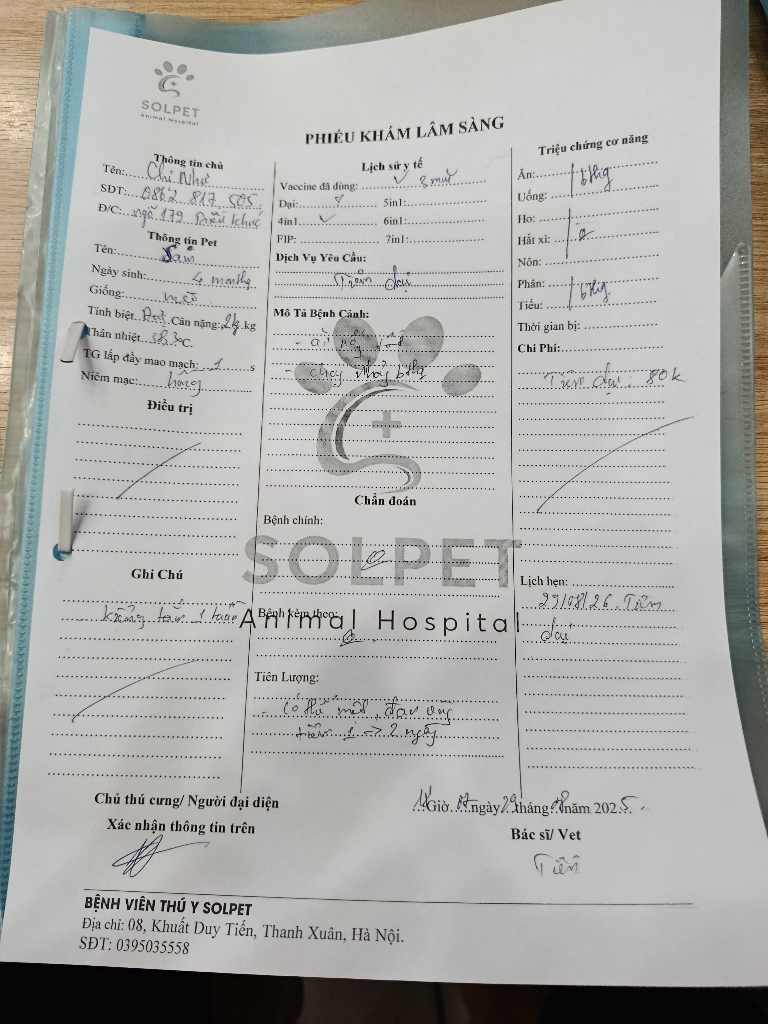 SOLPET
Animal Hospital
PHIẾU KHÁM LÂM SÀNG
Thông tin chủ
Tên: Chị Như
SĐT: 0862 817 505
Đ/C: ngõ 179 Triều Khúc
Thông tin Pet
Tên:
Ngày sinh: 4 months
Giống: mèo
Tính biệt: Cân nặng: 2kg.kg
Thân nhiệt °C.
TG lấp đầy mao mạch: 1 s
Niêm mạc: hồng
Điều trị
Ghi Chú
kiêng tắm 1 tuần
Lịch sử y tế
Vaccine đã dùng: ✓ 3 mũi
Dại:
5in1:
4in1: ✓
6in1:
FIP:
7in1:
Dịch Vụ Yêu Cầu:
Tiêm dại
Mô Tả Bệnh Cảnh:
- ăn uống
- chạy nhảy bthg
Chẩn đoán
Bệnh chính:
SOLPET
Bệnh kèm theo:
Animal Hospital
Tiên Lượng:
- Có thể mệt, đau vùng
tiêm 1 -> 2 ngày
Triệu chứng cơ năng
Ăn: bthg
Uống:
Ho:
Hắt xì:
Nôn:
Phân: bthg
Tiểu:
Thời gian bị:
Chi Phí:
Tiêm dại: 80k
Lịch hẹn:
29/08/26. Tiêm
dại
Chủ thú cưng/ Người đại diện
Xác nhận thông tin trên
Giờ 07 ngày 29 tháng 08 năm 2025
Bác sĩ/ Vet
Tiên
BỆNH VIÊN THÚ Y SOLPET
Địa chỉ: 08, Khuất Duy Tiến, Thanh Xuân, Hà Nội.
SĐT: 0395035558